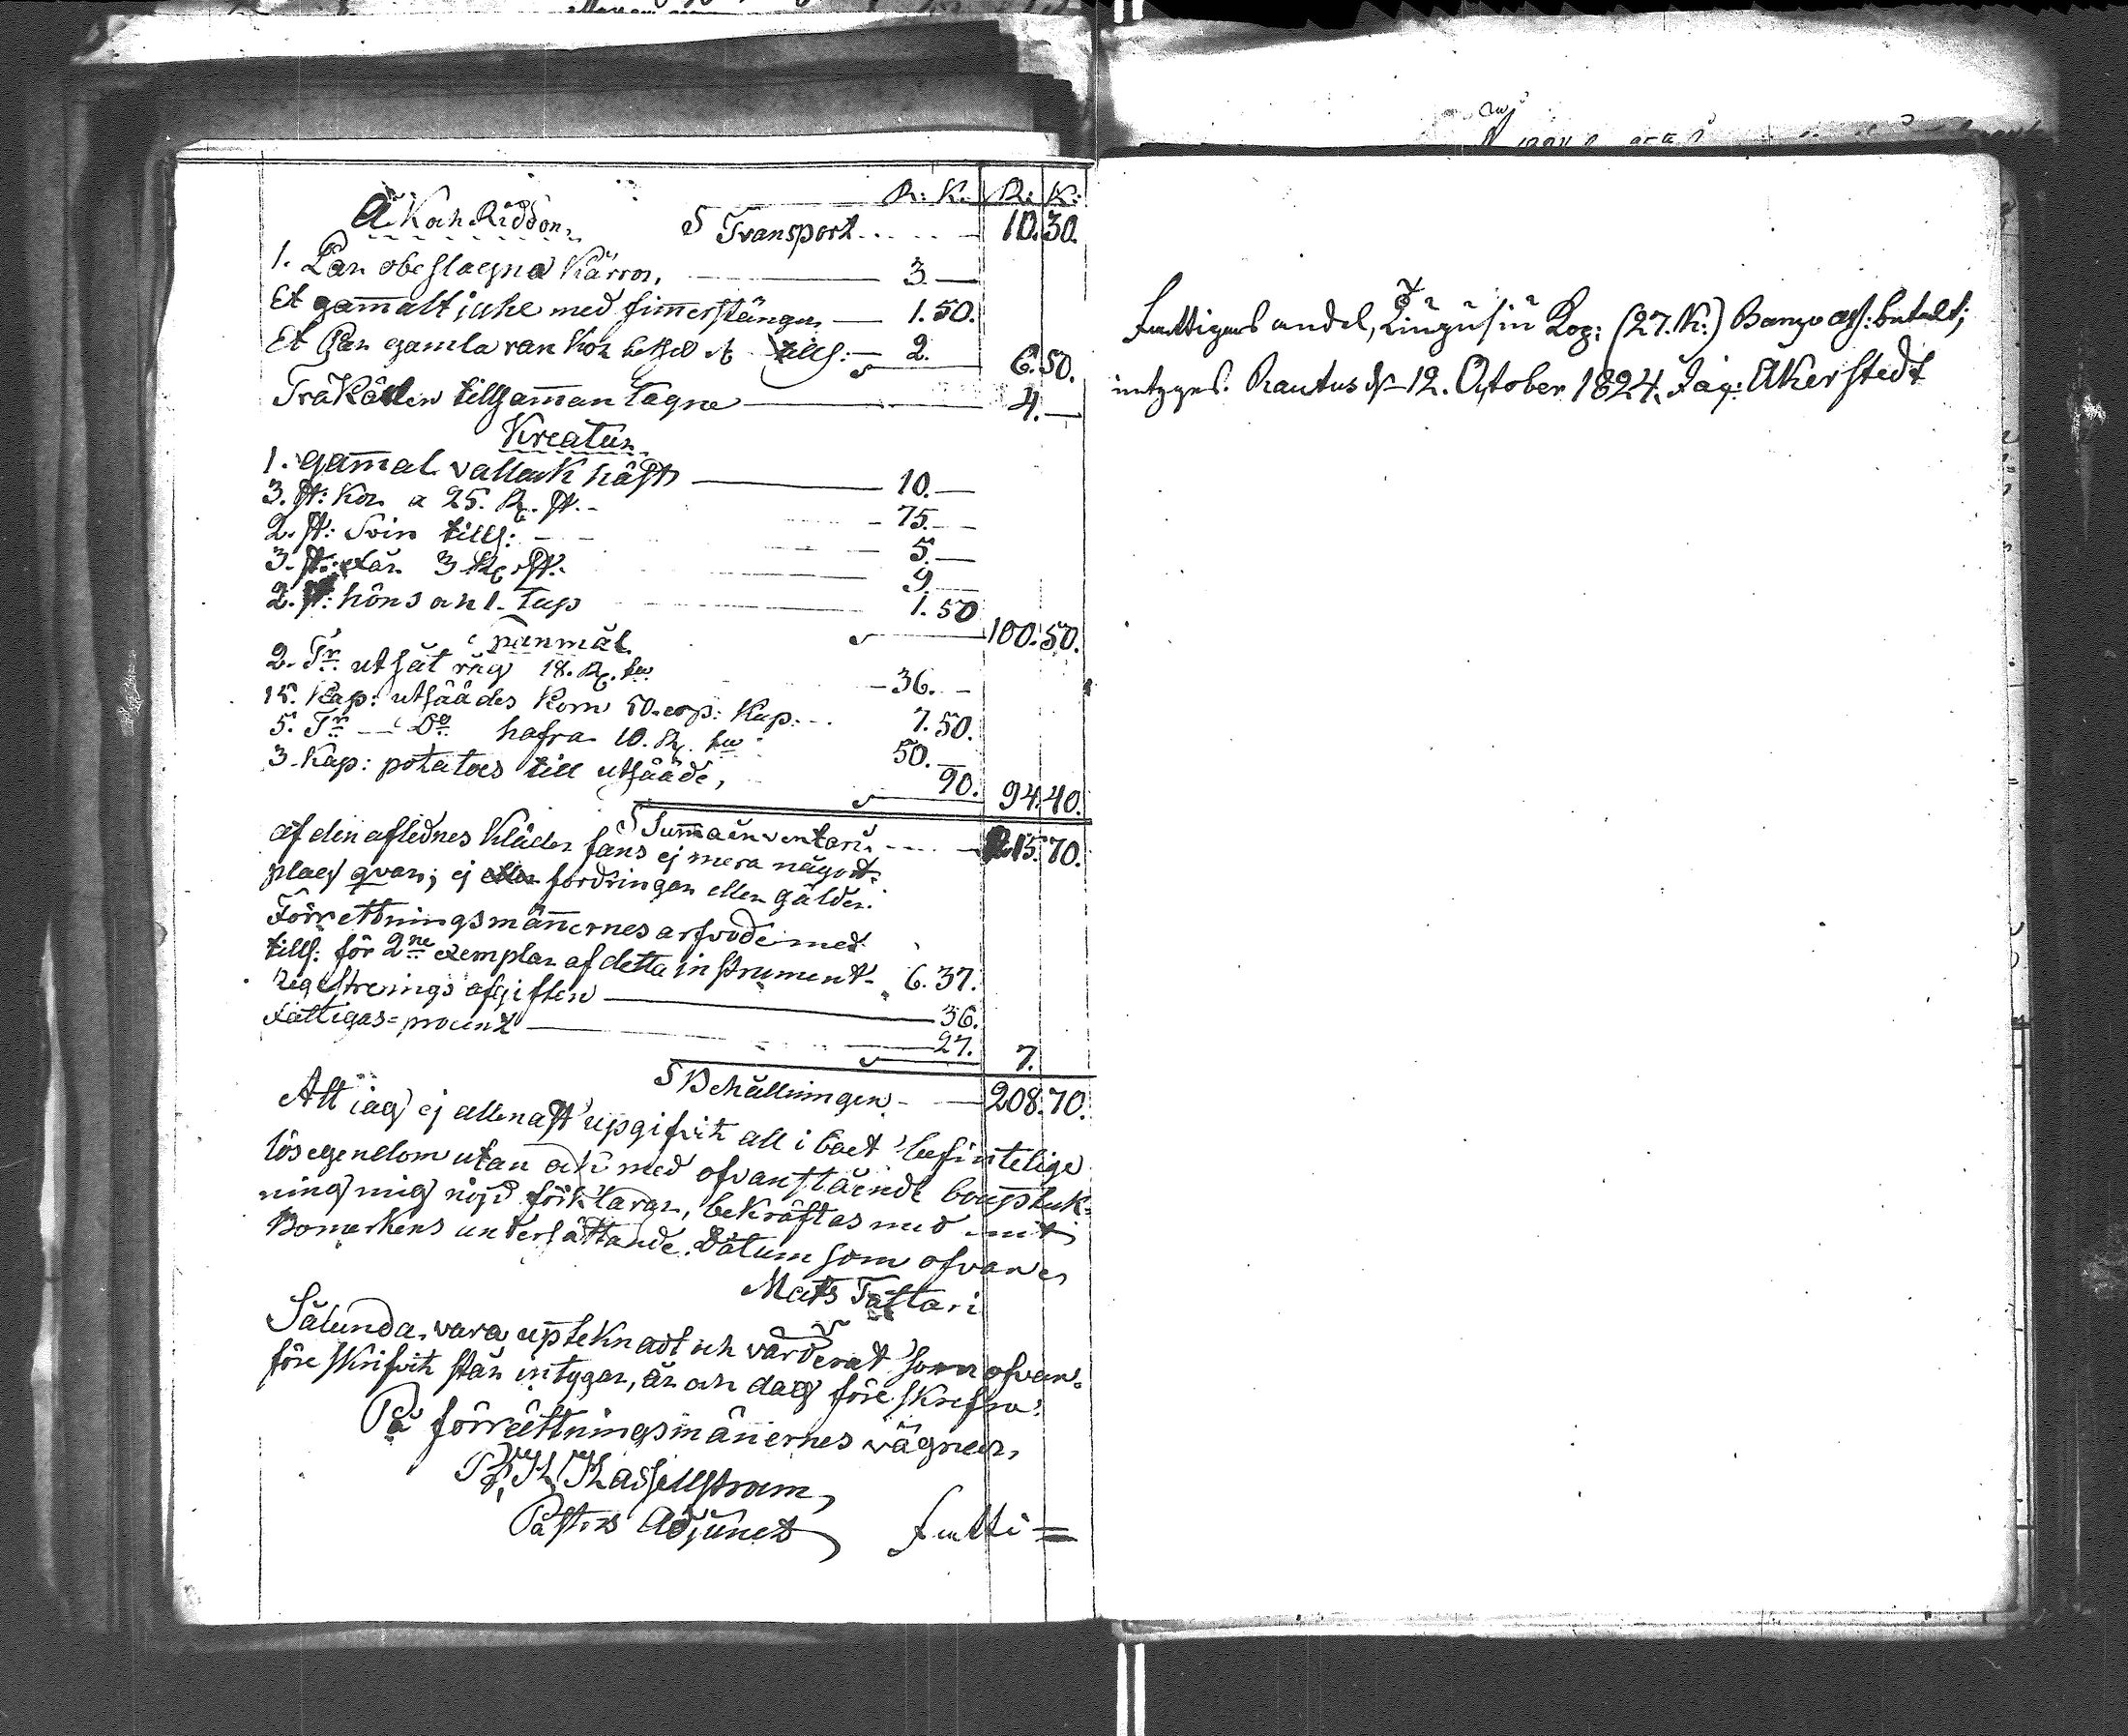 R: K. R: K:
Åk och Riddon, S Transport..... — 10.30.
1. Par obeslagna Kärror, — 3. —
Et gam̄alt juhe med fim̄erstänger — 1.50.
Et Par gamla rankor tills: — 2. 6.50.
Träkärilen tillsam̄antagne — 4. —
Kreatur
1. gam̄al vallack häst — 10. —
3. st: Kor a 25. R. st. - 75. —
2. st: Svin tills: — 5. —
3. st: får 3 R. st. — 9. —
2. st: höns och 1. Tup — 1.50 100.50.
Spanmål
2. Tr utsåt råg 18. R. — 36. —
15. Kap: utsäädes Korn 50. cop: Kap: .. 7.50.
5. Tr — Do hafra 10. R. 50. —
3 Kap: potatoes till utsääde, 90. 94.40.
S Sum̄a inventarii.... — 215.70.
af den aflednes Kläder fans ej mera något
plagg qvar; ej fordringar eller gälder.
Förrettningsmän̄ernes arfvode med
tills: för 2ne exemplar af detta instrument - 6.37.
Registrerings afgiften — 36.
Fattigas=procent — 27. 7.
S Behållningen — 208.70.
Att jag ej allenast upgifvit all i boet befintelige
lösegendom utan och med ofvanstående bouptek=
ning mig nöjd förklarar, bekräftas med mit
Bomerkens undersättande. Datum som ofvan
Mats Tattari
Sålunda vara upteknadt och värderat som ofvan=
före skrifvit står intygar, år och dag föreskrefna:
På förrättningsmän̄ernes vägnar,
Hassellstram,
Pastors Adjunct
Fatti=
Fattigas andel, Kop: (27. K:) Banco ass: betalt;
intygas. Rautus d. 12. October 1824. Jag: Akerstedt